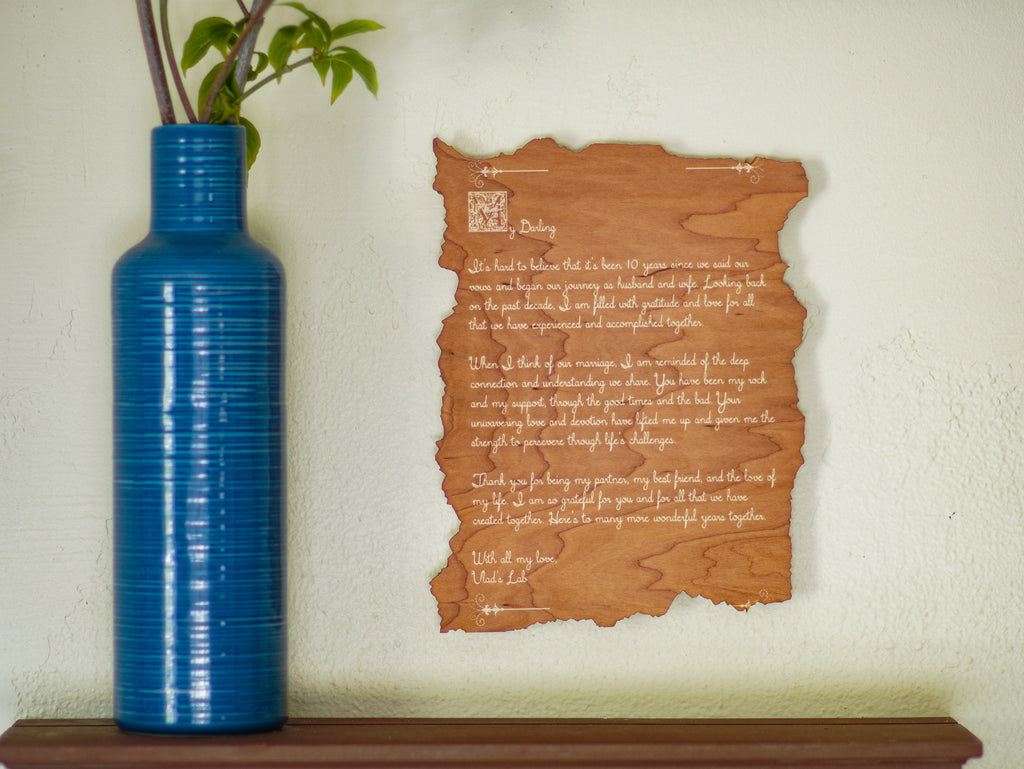 My Darling
It's hard to believe that it's been 10 years since we said our
vows and began our journey as husband and wife. Looking back
on the past decade, I am filled with gratitude and love for all
that we have experienced and accomplished together.
When I think of our marriage, I am reminded of the deep
connection and understanding we share. You have been my rock
and my support, through the good times and the bad. Your
unwavering love and devotion have lifted me up and given me the
strength to persevere through life's challenges.
Thank you for being my partner, my best friend, and the love of
my life. I am so grateful for you and for all that we have
created together. Here's to many more wonderful years together.
With all my love,
Vlad's Lab